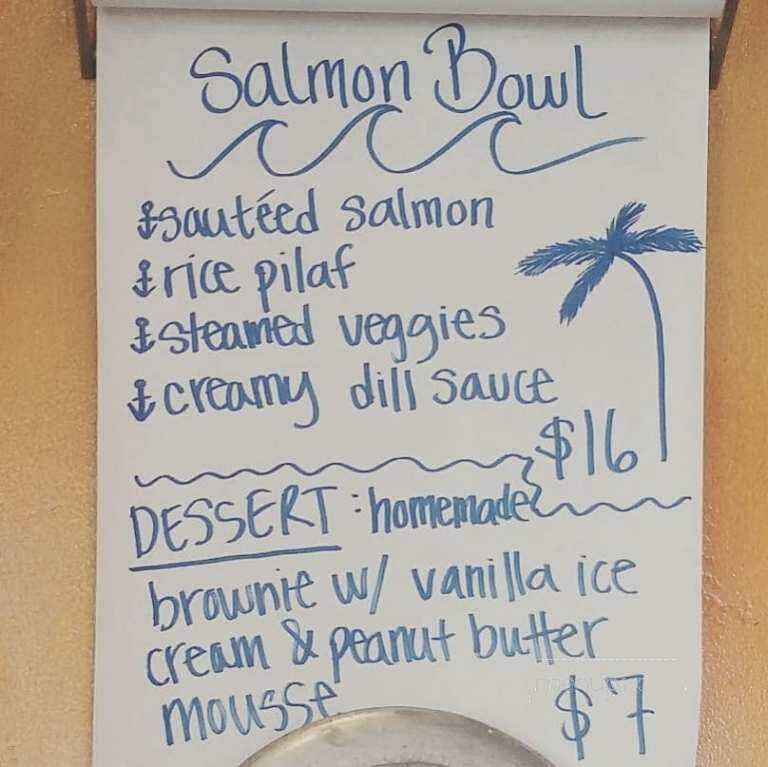 Salmon Bowl
sautéed salmon
rice pilaf
steamed veggies
creamy dill sauce
$16
DESSERT: homemade
brownie w/ vanilla ice
cream & peanut butter
mousse
$7